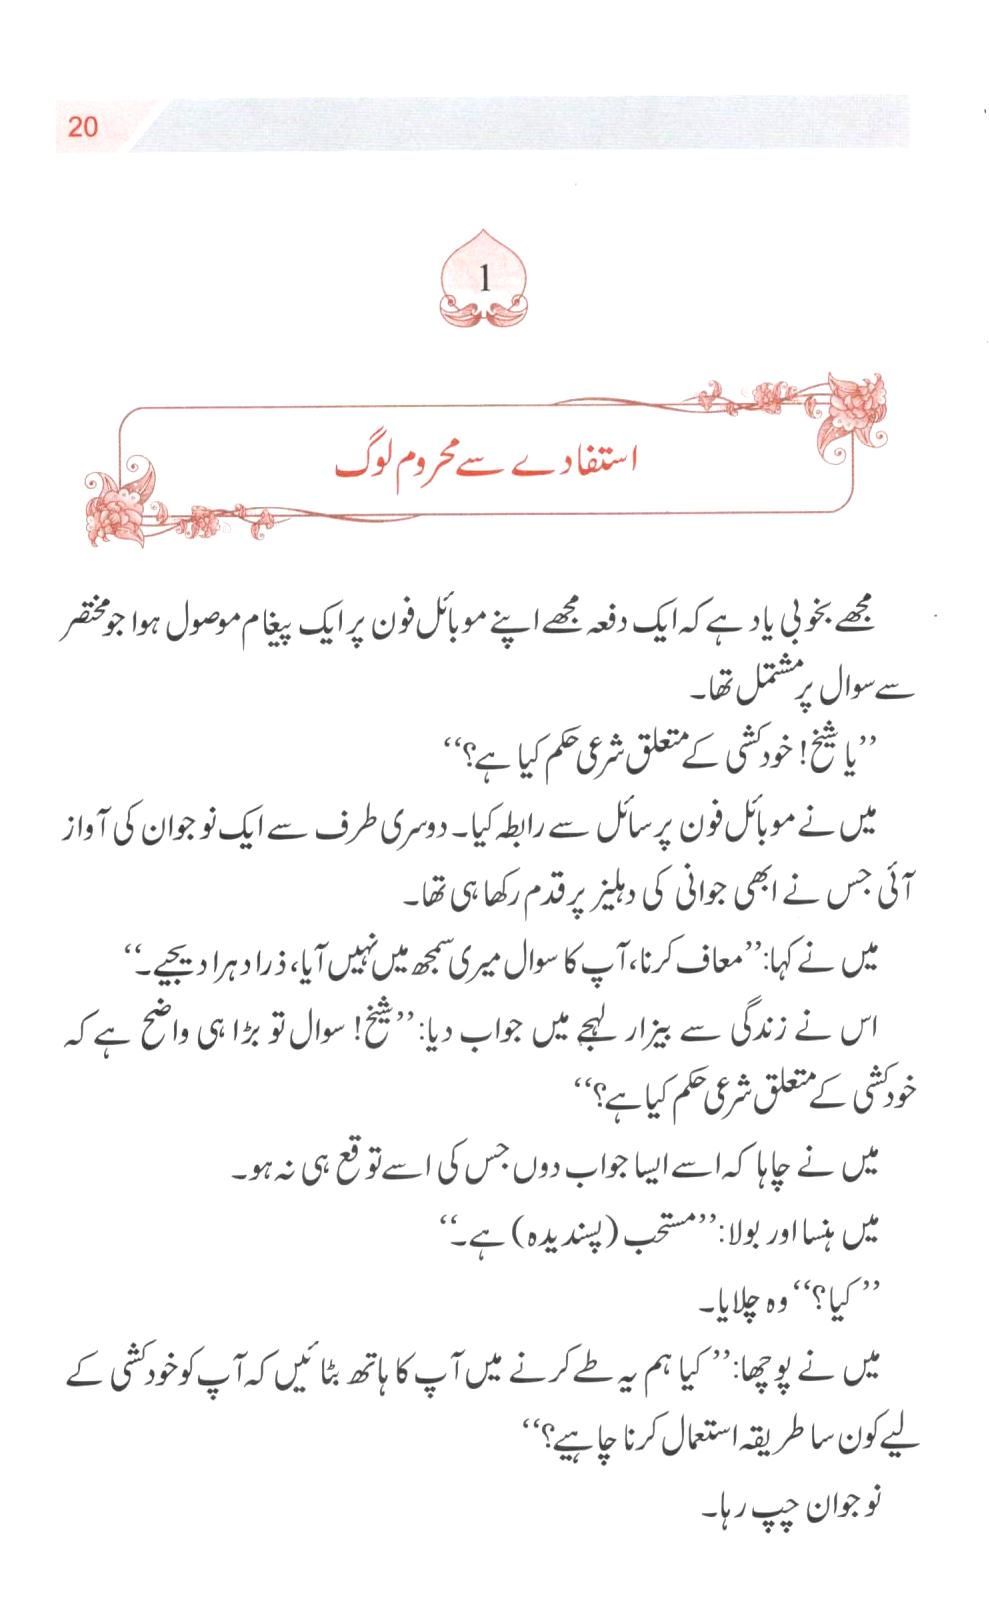 20
1
استفادے سے محروم لوگ
مجھے بخوبی یاد ہے کہ ایک دفعہ مجھے اپنے موبائل فون پر ایک پیغام موصول ہوا جو مختصر
سے سوال پر مشتمل تھا۔
’’یا شیخ! خودکشی کے متعلق شرعی حکم کیا ہے؟‘‘
میں نے موبائل فون پر سائل سے رابطہ کیا۔ دوسری طرف سے ایک نوجوان کی آواز
آئی جس نے ابھی جوانی کی دہلیز پر قدم رکھا ہی تھا۔
میں نے کہا: ’’معاف کرنا، آپ کا سوال میری سمجھ میں نہیں آیا، ذرا دہرا دیجیے۔‘‘
اس نے زندگی سے بیزار لہجے میں جواب دیا: ’’شیخ! سوال تو بڑا ہی واضح ہے کہ
خودکشی کے متعلق شرعی حکم کیا ہے؟‘‘
میں نے چاہا کہ اسے ایسا جواب دوں جس کی اسے توقع ہی نہ ہو۔
میں ہنسا اور بولا: ’’مستحب (پسندیدہ) ہے۔‘‘
’’کیا؟‘‘ وہ چلایا۔
میں نے پوچھا: ’’کیا ہم یہ طے کرنے میں آپ کا ہاتھ بٹائیں کہ آپ کو خودکشی کے
لیے کون سا طریقہ استعمال کرنا چاہیے؟‘‘
نوجوان چپ رہا۔